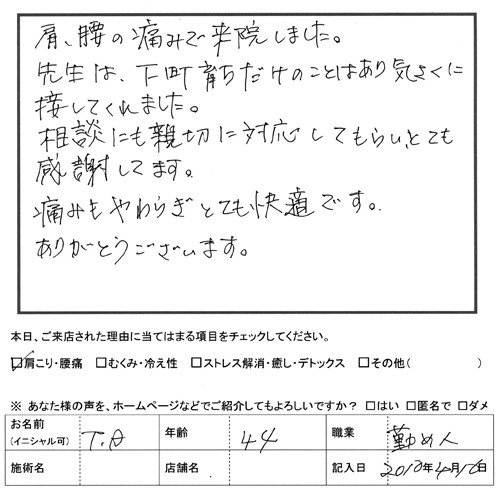 肩、腰の痛みで来院しました。
先生は、下町育ちだけのことはあり気さくに
接してくれました。
相談にも親切に対応してもらい、とても
感謝してます。
痛みもやわらぎとても快適です。
ありがとうございます。
本日、ご来店された理由に当てはまる項目をチェックしてください。
☑肩こり・腰痛 □むくみ・冷え性 □ストレス解消・癒し・デトックス □その他( )
※ あなた様の声を、ホームページなどでご紹介してもよろしいですか？ □はい □匿名で □ダメ
お名前(イニシャル可) T.A 年齢 44 職業 勤め人
施術名 店舗名 記入日 2010年4月16日